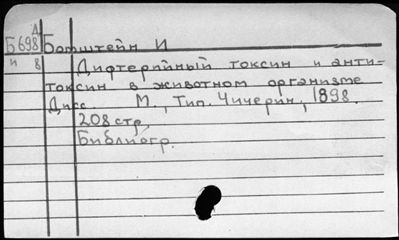 Д
Б698 Богштейн И
и 8 Дифтерийный токсин и анти-
токсин в животном организме
Дисс М., Тип. Чичерин, 1898.
208 стр.
Библиогр.